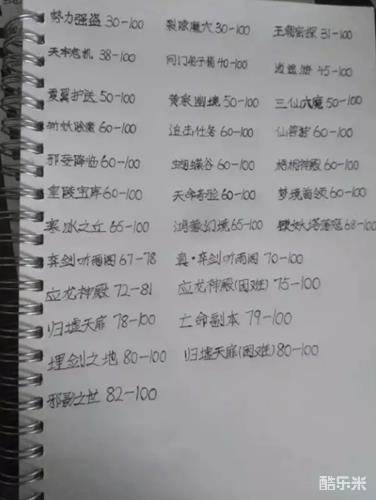 势力强盗 30-100 裂隙魔穴 30-100 王朝密探 31-100
天牢危机 38-100 同门名子箱 40-100 逍遥游 45-100
羲翼护送 50-100 黄泉幽境 50-100 三仙六魔 50-100
斩妖除魔 60-100 追击任务 60-100 仙兽封 60-100
邪妄降临 60-100 蝴蝶谷 60-100 梧桐神殿 60-100
皇陵宝库 60-100 天命奇险 60-100 梦境首领 60-100
寒冰之丘 65-100 鸿蒙幻境 65-100 镇妖塔荡寇 68-100
弈剑听雨阁 67-78 真·弈剑听雨阁 70-100
应龙神殿 72-81 应龙神殿(困难) 75-100
归墟天扉 78-100 亡命副本 79-100
埋剑之地 80-100 归墟天扉(困难) 80-100
邪影之世 82-100
酷乐米